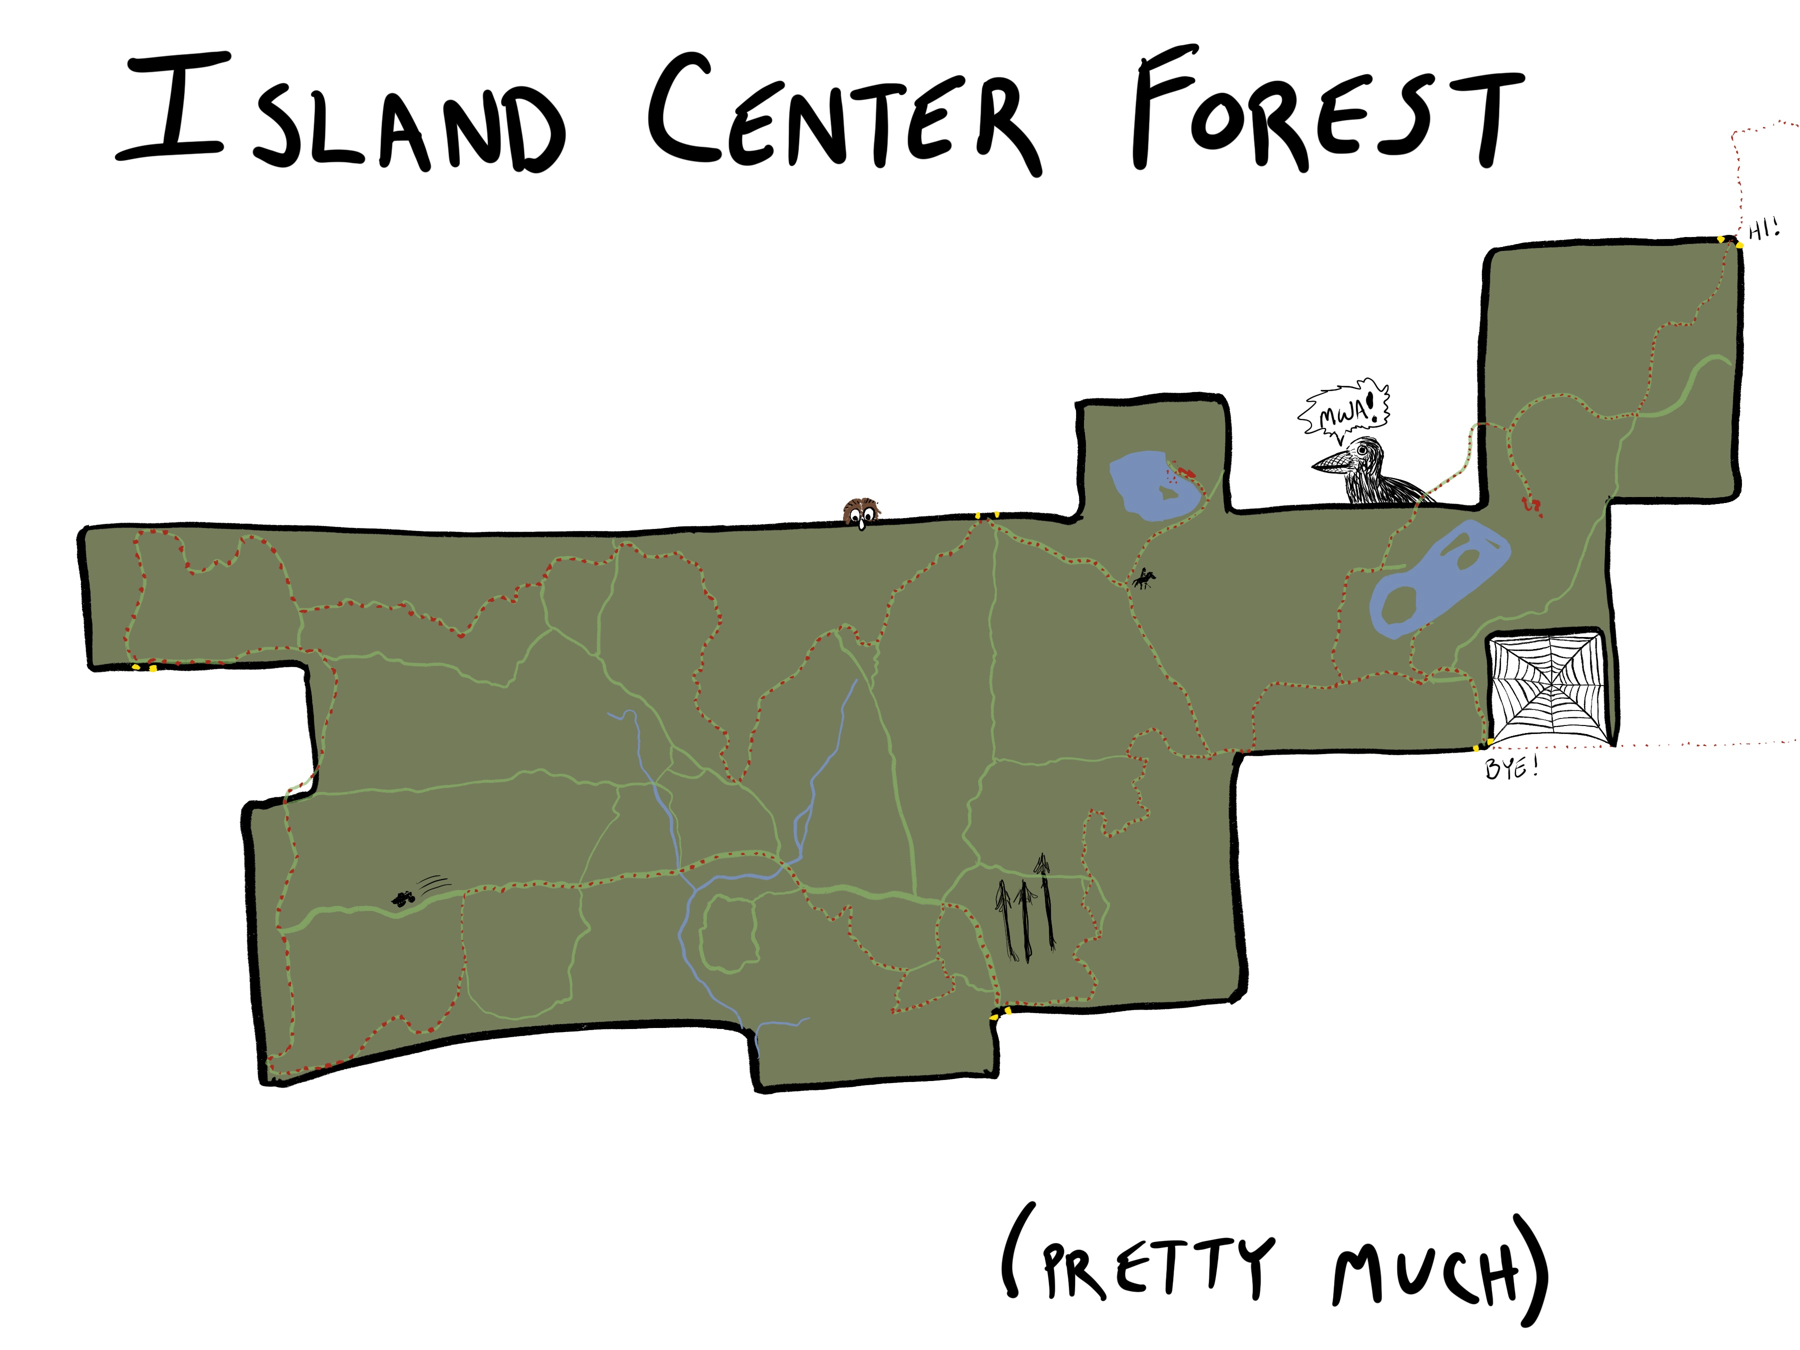 ISLAND CENTER FOREST
HI!
MWA!
BYE!
(PRETTY MUCH)